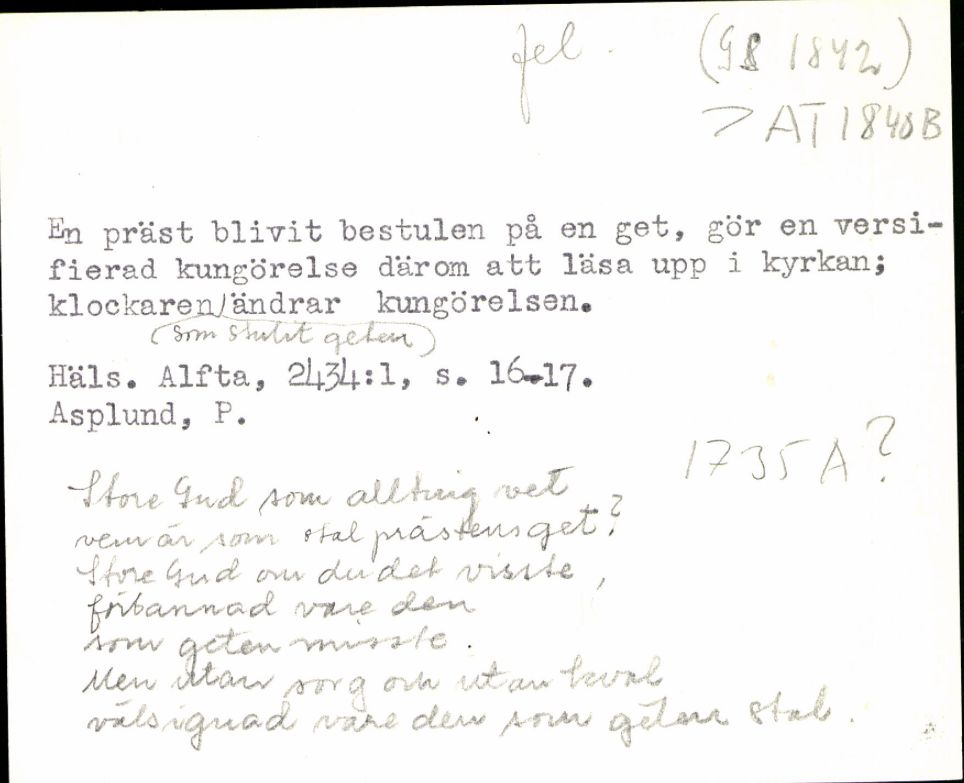 fel.
(GS 1842)
> AT 1840B
En präst blivit bestulen på en get, gör en versi-
fierad kungörelse därom att läsa upp i kyrkan;
klockaren/ändrar kungörelsen.
(som stulit geten)
Häls. Alfta, 2434:1, s. 16-17.
Asplund, P.
1735 A?
Store Gud som allting vet
vem är som stal prästens get?
Store Gud om du det visste,
förbannad vare den
som geten misste.
Men utan sorg och utan kval
välsignad vare den som geten stal.